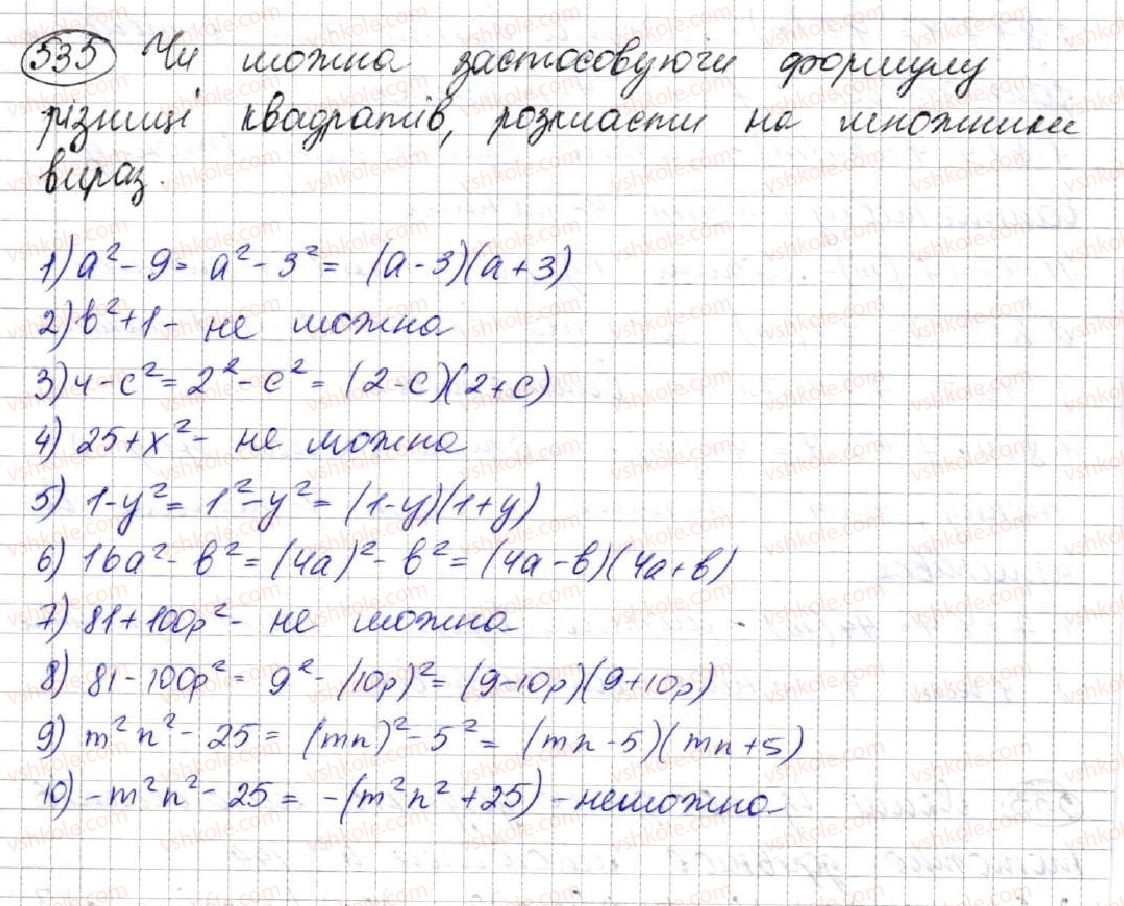 535 Чи можна застосовуючи формулу
різниці квадратів, розкласти на множники
вираз.
1) a² - 9 = a² - 3² = (a - 3)(a + 3)
2) b² + 1 - не можна
3) 4 - c² = 2² - c² = (2 - c)(2 + c)
4) 25 + x² - не можна
5) 1 - y² = 1² - y² = (1 - y)(1 + y)
6) 16a² - b² = (4a)² - b² = (4a - b)(4a + b)
7) 81 + 100p² - не можна
8) 81 - 100p² = 9² - (10p)² = (9 - 10p)(9 + 10p)
9) m²n² - 25 = (mn)² - 5² = (mn - 5)(mn + 5)
10) -m²n² - 25 = -(m²n² + 25) - неможна
vshkole.com